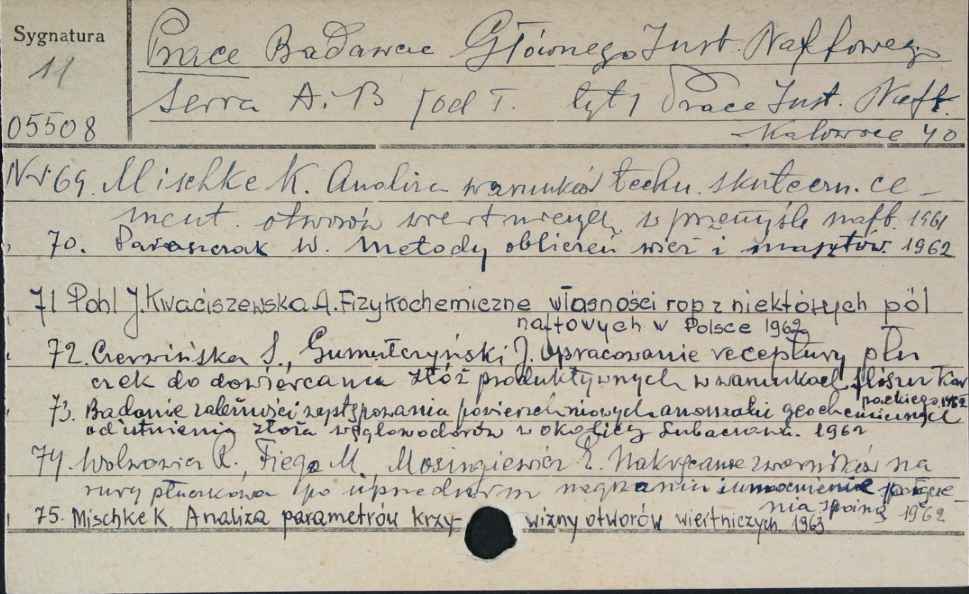 Sygnatura
11
05508
Prace Badawcze Głównego Inst. Naftowego
Seria A i B [od T. tyt] Prace Inst. Naft.
Katowice 40
Nr 69. Mischke K. Analiza warunków techn. skuteczn. ce-
ment. otworów wiertniczych w przemyśle naft. 1961
70. Paraszczak W. Metody obliczeń wież i masztów. 1962
71 Pohl J. Kwaciszewska A. Fizykochemiczne własności rop z niektórych pól
naftowych w Polsce 1962
72. Czerwińska S., Gumułczyński J. Opracowanie receptury płu
czek do dowiercania złóż produktywnych w warunkach fliszu Kar
packiego 1962
73. Badanie zależności występowania powierzchniowych anomalii geochemicznych
od istnienia złoża węglowodorów w okolicy Lubaczowa. 1962
74. Wolwowicz R., Fiega M. Mosingiewicz E. Nakręcanie zworników na
rury płuczkowe po uprzednim nagrzaniu i umocnienie połącze-
nia spoiną 1962
75. Mischke K. Analiza parametrów krzy- wizny otworów wiertniczych. 1963